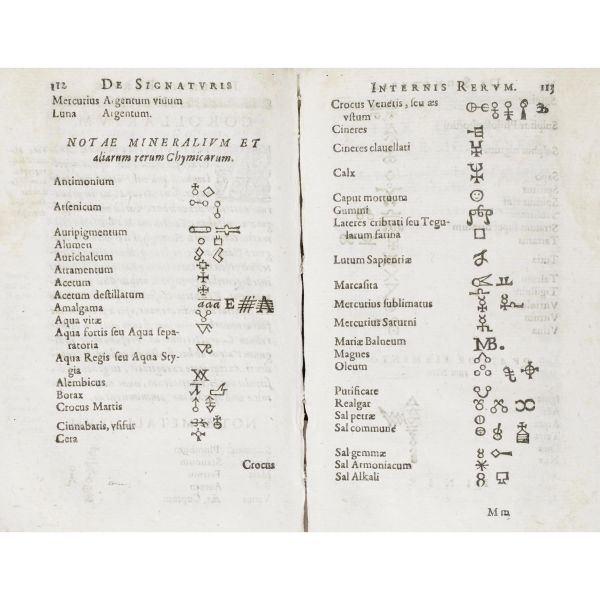 112 DE SIGNATVRIS
Mercurius Argentum viuum
Luna Argentum.
NOTAE MINERALIVM ET
aliarum rerum Chymicarum.
Antimonium
Arsenicum
Auripigmentum
Alumen
Aurichalcum
Atramentum
Acetum
Acetum destillatum
Amalgama aaa E #A
Aqua vitæ
Aqua fortis seu Aqua sepa-
ratoria
Aqua Regis seu Aqua Sty-
gia
Alembicus
Botax
Crocus Martis
Cinnabaris, vsifur
Cera
Crocus
INTERNIS RERVM. 113
Crocus Veneris, seu æs
vstum
Cineres
Cineres clauellati
Calx
Caput mortuum
Gummi
Lateres cribrati seu Tegu-
larum farina
Lutum Sapientiæ
Marcasita
Mercurius sublimatus
Mercurius Saturni
Mariæ Balneum MB.
Magnes
Oleum
Purificare
Realgar
Sal petræ
Sal commune
Sal gemmæ
Sal Armoniacum
Sal Alkali